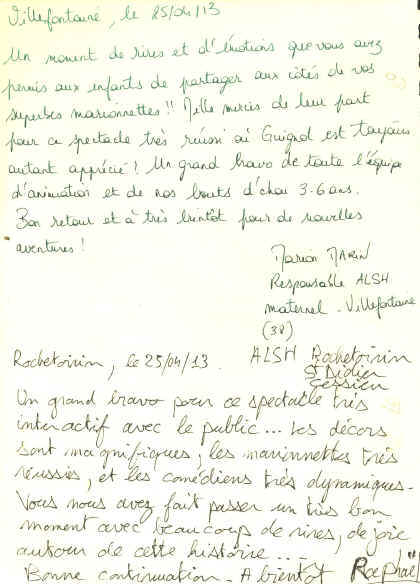 Villefontaine, le 25/04/13
Un moment de rires et d'émotions que vous avez
permis aux enfants de partager aux côtés de vos
superbes marionnettes !! Mille mercis de leur part
pour ce spectacle très réussi où Guignol est toujours
autant apprécié ! Un grand bravo de toute l'équipe
d'animation et de nos bouts d'chou 3-6 ans.
Bon retour et à très bientôt pour de nouvelles
aventures !
Marion MARIN
Responsable ALSH
maternel - Villefontaine
(38)
Rochetoirin, le 25/04/13. ALSH Rochetoirin
St Didier
Cessieu
Un grand bravo pour ce spectacle très
interactif avec le public... Les décors
sont magnifiques, les marionnettes très
réussies, et les comédiens très dynamiques.
Vous nous avez fait passer un très bon
moment avec beaucoup de rires, de joie
autour de cette histoire...
Bonne continuation. A bientôt